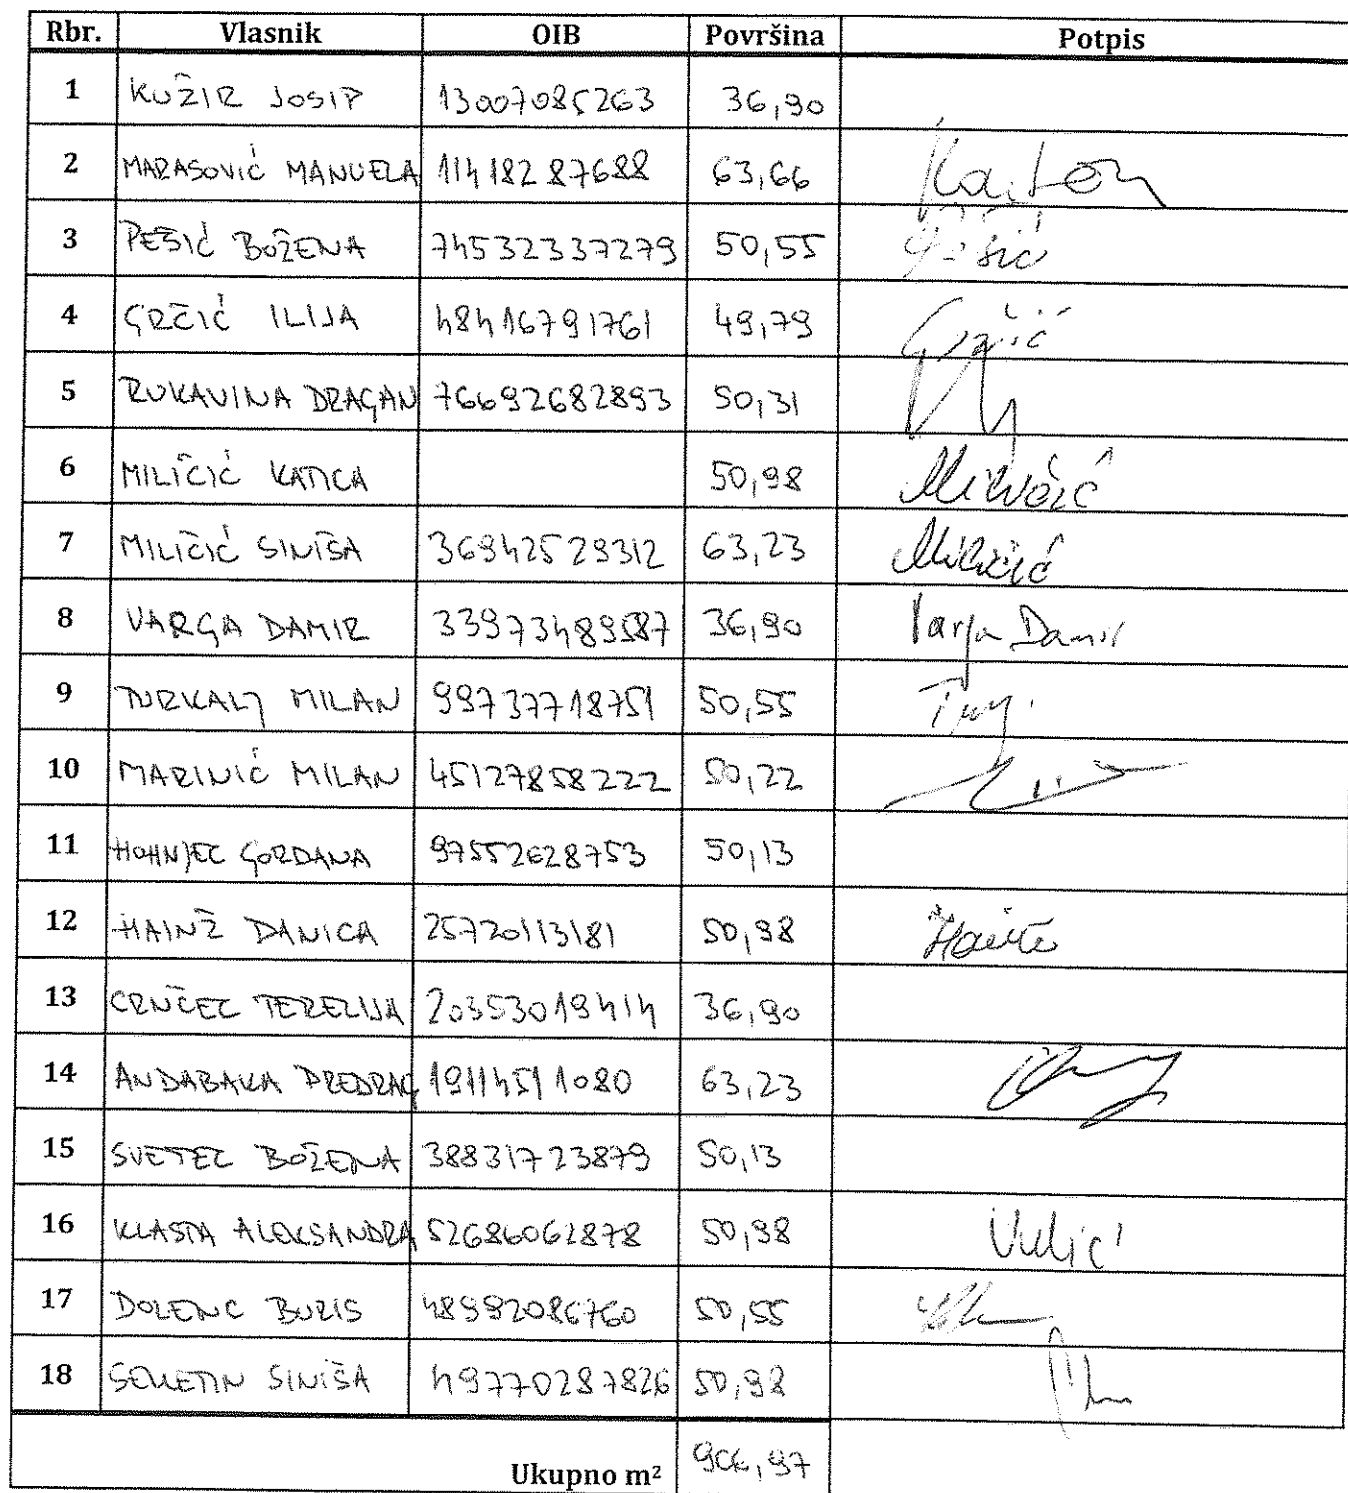 Rbr. Vlasnik OIB Površina Potpis
1 KUŽIR JOSIP 13007085263 36,90
2 MARASOVIĆ MANUELA 11418287688 63,66
3 PEŠIĆ BOŽENA 74532337279 50,55 Pešić
4 GRČIĆ ILIJA 48416791761 49,79 Grčić
5 RUKAVINA DRAGAN 76692682893 50,31
6 MILIČIĆ KATICA 50,98 Miličić
7 MILIČIĆ SINIŠA 36942529312 63,23 Miličić
8 VARGA DAMIR 33973489587 36,90 Varga Damir
9 TURKALJ MILAN 99737718751 50,55
10 MARINIĆ MILAN 45127858222 50,22
11 HOHNJEC GORDANA 97552628753 50,13
12 HAINŽ DANICA 25720113181 50,98
13 CRNČEC TEREZIJA 20353019414 36,90
14 ANDABAKA PREDRAG 19114511080 63,23
15 SVETEC BOŽENA 38831723879 50,13
16 KLASTA ALEKSANDRA 52686062878 50,98
17 DOLENC BORIS 48992086760 50,55
18 SEMETIN SINIŠA 49770287826 50,98
Ukupno m² 906,97